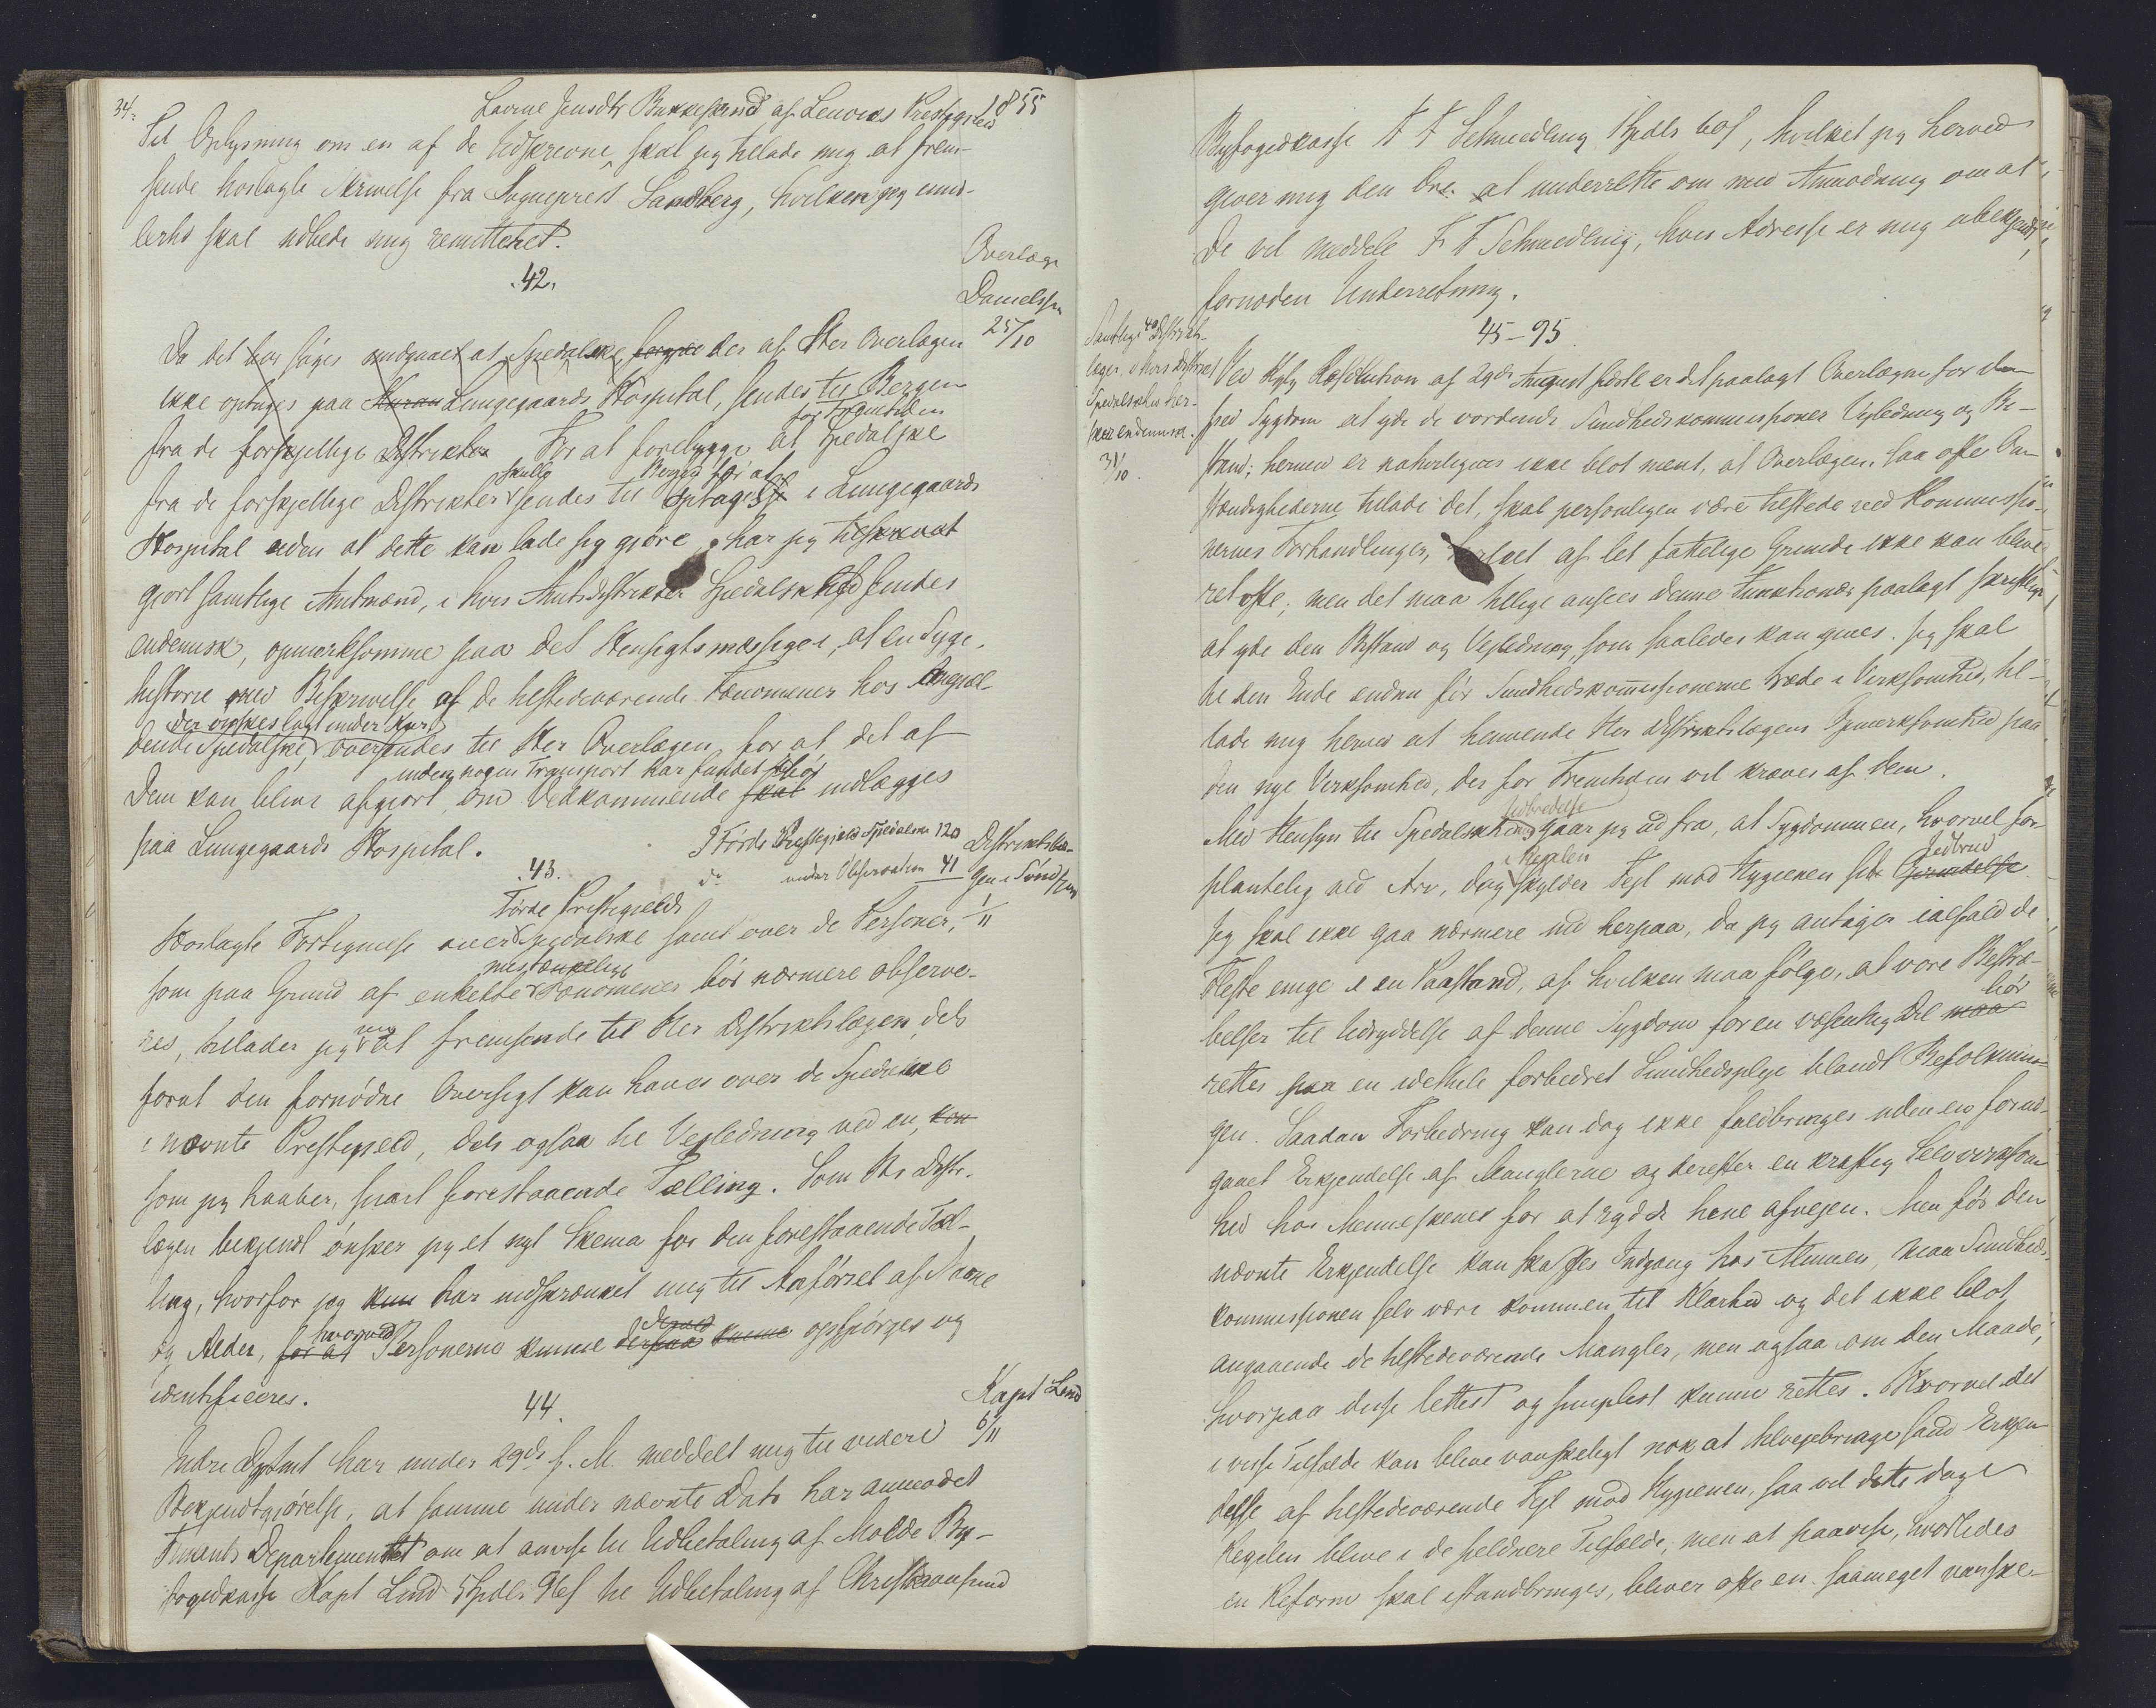 34.
1855
Lovise Jensdtr Bukkesund af Lenvigs Prestegjeld
Til Oplysning om en af de Udskrevne skal jeg tillade mig at frem-
sende hoslagte Skrivelse fra Sognepræst Sandberg, hvilken jeg imid-
lertid skal udbede mig remitteret.
.42.
Overlæge
Danielssen
25/10
Da det bør søges undgaaet at Spedalske, der af Hr Overlægen
ikke optages paa Lungegaards Hospital, sendes til Bergen
fra de forskjellige Distrikter For at forebygge at Spedalske
for Fremtiden
fra de forskjellige Distrikter sendes til optages i Lungegaards
skulle Bergen for at
Hospital uden at dette kan lade sig gjøre, har jeg tilskrevet
gjort samtlige Amtmænd, i hvis Amtsdistrikter Spedalskhed findes
endemisk, opmærksomme paa det Hensigtsmæssige i, at en Syge-
historie med Beskrivelse af de tilstedeværende Fænomener hos Angjæl-
der ønskes lagt under Kur
dende Spedalske, oversendes til Hr Overlægen, for at det af
inden nogen Transport har fundet Sted
Dem kan blive afgjort, om Vedkommende skal indlægges
paa Lungegaards Hospital.
I Førde Prestegjeld Spedalske 120
do under Observation 41
Distriktslæ-
gen i Søndfjord
1/11
.43.
Førde Prestegjelds
Hoslagte Fortegnelse over Spedalske samt over de Personer,
mistænkelige
som paa Grund af enkelte Fænomener bør nærmere observe-
res, tillader jeg mig at fremsende til Hr Distriktslægen, dels
forat den fornødne Oversigt kan haves over de Spedalske
i nævnte Prestegjeld, dels ogsaa til Vejledning ved en, kon
som jeg haaber, snart forestaaende Tælling. Som Hr Distr.
lægen bekjendt ønsker jeg et nyt Skema for den forestaaende Tæl-
ling, hvorfor jeg kun har indskrænket mig til Anførsel af Navne
og Alder, for at hvorved Personerne kunne derpaa kunne opspørges og
identificeres.
44.
Kapt Lind
6/11
Indre Dptmt har under 29de f. M. meddelt mig til videre
Bekjendtgjørelse, at samme under nævnte Dato har anmodet
Finants Departementet om at anvise til Udbetaling af Molde By-
fogedkasse Kapt Lind 5 Spdl. 96 s til Udbetaling af Christiansund
Byfogedkasse F F Schmedling Spdlr 60 s, hvilket jeg herved
giver mig den Ære at underrette om med Anmodning om at
De vil meddele F F Schmedling, hvis Adresse er mig ubekjendt,
fornøden Underretning.
45-95.
Samtlige 40 Distrikts-
læger i hvis Distrikt
Spedalskhed her-
sker endemisk.
31/10.
Ved Kglg Resolution af 29de August sidstl er det paalagt Overlægen for den
sped Sygdom at yde de vordende Sundhedskommissioner Vejledning og Bi-
stand; hermed er naturligvis ikke blot ment, at Overlægen, saa ofte Om-
stændighederne tillade det, skal personligen være tilstede ved Kommissio-
nernes Forhandlinger, hvilket af let fattelige Grunde ikke kan blive
ret ofte; men det maa tillige ansees denne Funktionær paalagt skriftligt
at yde den Bistand og Vejledning, som saaledes kan gives. Jeg skal
til den Ende endnu før Sundhedskommissionerne træde i Virksomhed, til-
lade mig herved at henvende Hr Distriktslægens Opmærksomhed paa
den nye Virksomhed, der for Fremtiden vil kræves af dem.
Udbredelse
Med Hensyn til Spedalskheden gaar jeg ud fra, at Sygdommen, hvorvel for-
i Regelen Udbrud
plantelig ved Arv, dog skylder Fejl mod Hygienen sit
Jeg skal ikke gaa nærmere ind herpaa, da jeg antager ialfald de
Fleste enige i en Paastand, af hvilken maa følge, at vore Bestræ-
bør
belser til Udryddelse af denne Sygdom for en væsentlig Del maa
rettes paa en idethele forbedret Sundhedspleje blandt Befolknin-
gen. Saadan Forbedring kan dog ikke fuldbringes uden en forud-
gaaet Erkjendelse af Manglerne og derefter en kraftig Selvvirksom-
hed hos Menneskenes for at rydde hine afvejen. Men før den
nævnte Erkjendelse kan skaffes Indgang hos Almuen, maa Sundheds-
kommissionen selv være kommen til Klarhed og det ikke blot
angaaende de tilstedeværende Mangler, men ogsaa om den Maade,
hvorpaa disse lettest og simplest kunne rettes. Hvorvel det
i visse Tilfælde kan blive vanskeligt nok at tilvejebringe sand Erkjen-
delse af tilstedeværende Fejl mod Hygienen, saa vil dette dog i
Regelen blive i de sjeldnere Tilfælde, men at paavise, hvorledes
en Reform skal istandbringes, bliver ofte en saameget vanske-